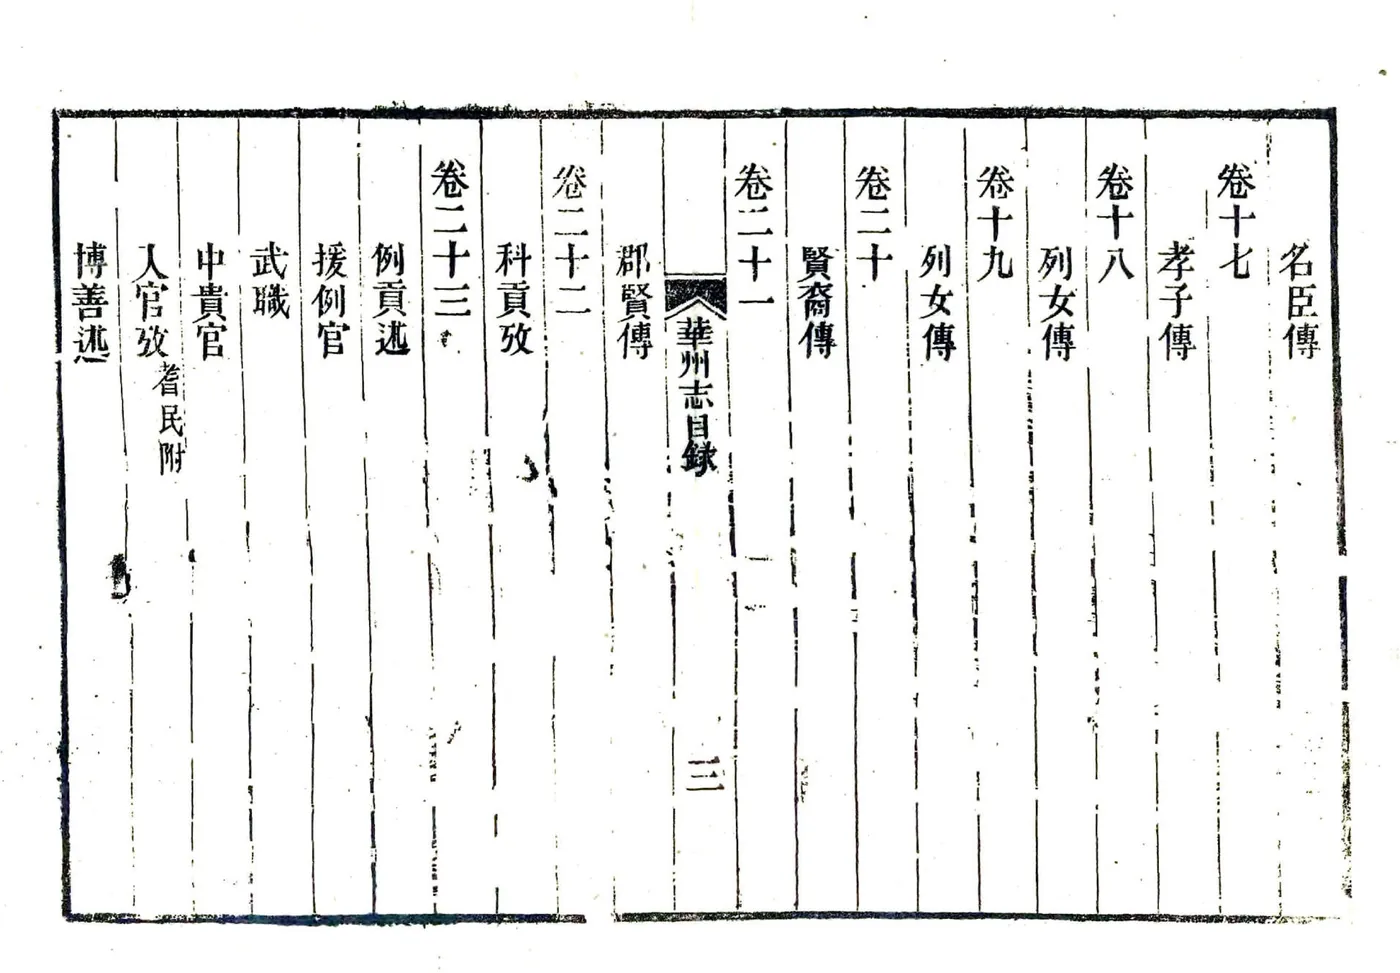 名臣傳
卷十七
孝子傳
卷十八
列女傳
卷十九
列女傳
卷二十
賢裔傳
卷二十一
華州志目録
三
郡賢傳
卷二十二
科貢攷
卷二十三
例貢述
援例官
武職
中貴官
人官攷
耆民附
博善述